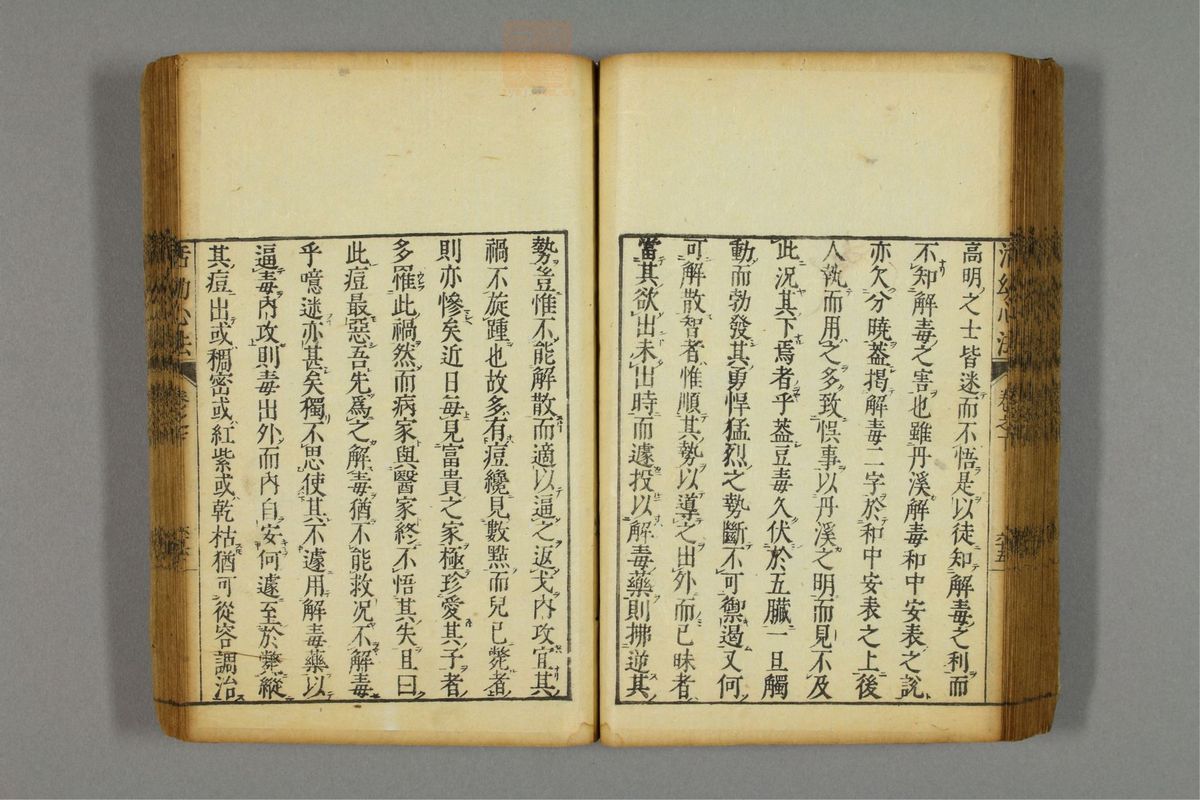 高明之士皆迷而不悟是以徒知解毒之利而
不知解毒之害也雖丹溪解毒和中安表之說
亦欠分曉葢揭解毒二字於和中安表之上後
人執而用之多致悞事以丹溪之明而見不及
此况其下焉者乎葢豆毒久伏於五臟一旦觸
動而勃發其勇悍猛烈之勢斷不可禦遏又何
可解散智者惟順其勢以導之出外而已昧者
當其欲出未出時而遽投以解毒藥則拂逆其
勢豈惟不能解散而適以逼之返戈內攻宜其
禍不旋踵也故多有痘纔見數點而兒已斃者
則亦慘矣近日每見富貴之家極珍愛其子者
多罹此禍然而病家與醫家終不悟其失且曰
此痘最惡吾先爲之解毒猶不能救况不解毒
乎噫迷亦甚矣獨不思使其不遽用解毒藥以
逼毒內攻則毒出外而內自安何遽至於斃縱
其痘出或稠密或紅紫或乾枯猶可從容調治
活幼心法